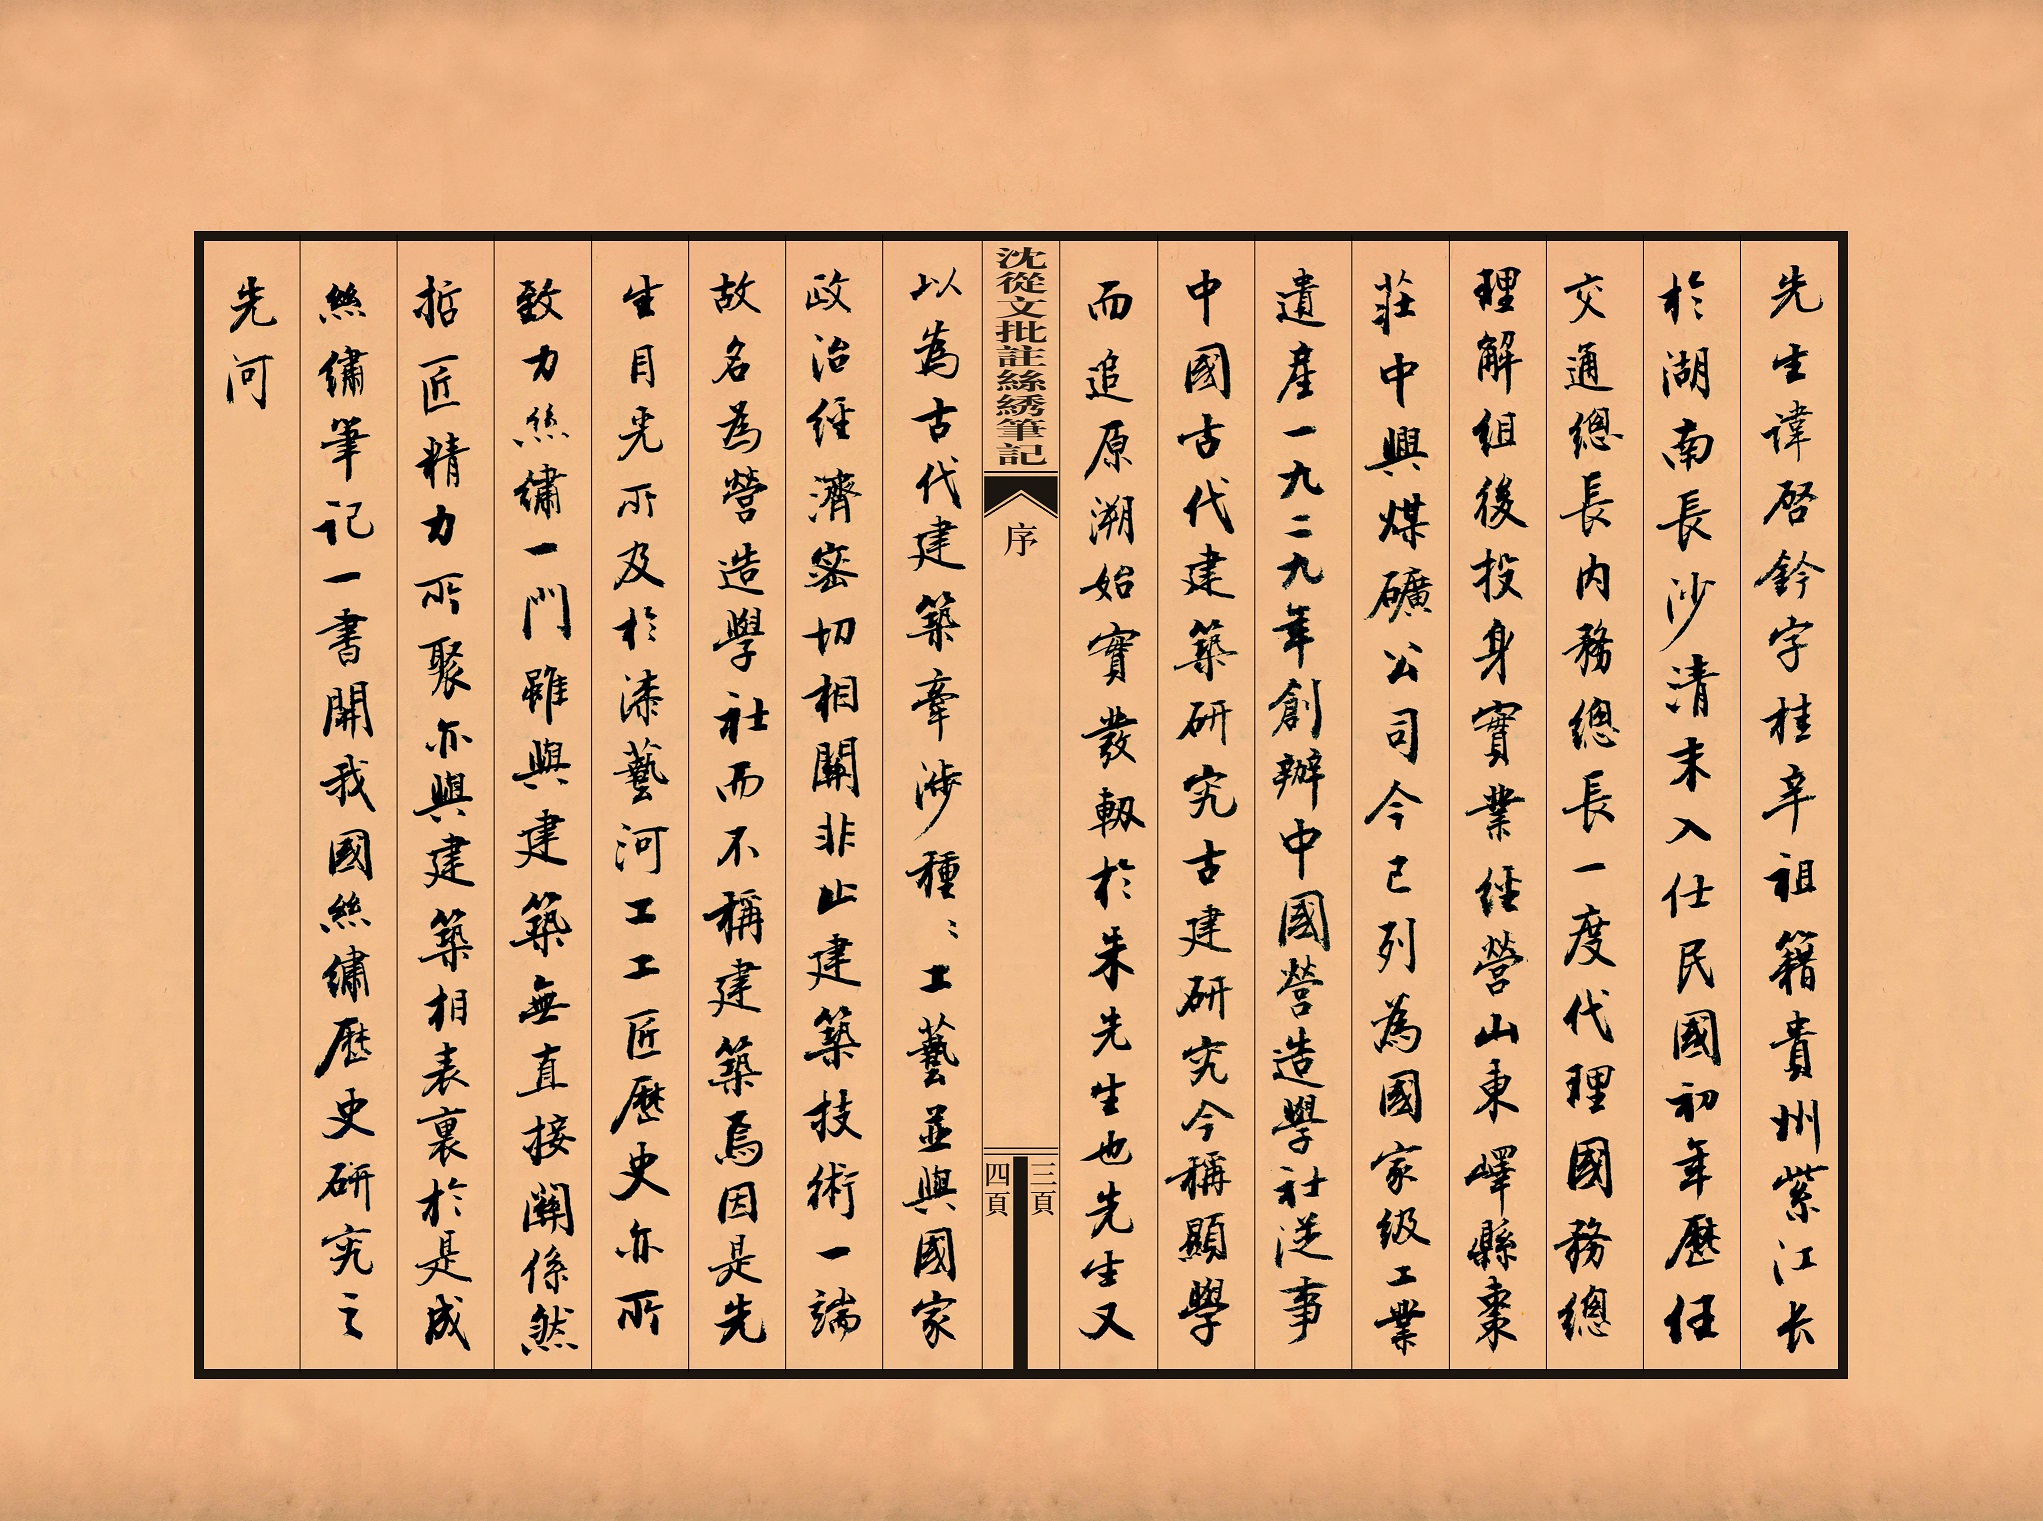 先生諱啓鈐字桂辛祖籍貴州紫江长
於湖南長沙清末入仕民國初年歷任
交通總長内務總長一度代理國務總
理解組後投身實業经營山東嶧縣棗
莊中興煤礦公司今已列為國家级工業
遺産一九二九年創辦中國營造學社從事
中國古代建築研究古建研究今稱顯學
而追原溯始實發軔於朱先生也先生又
沈從文批註絲綉筆記
序
三頁
四頁
以為古代建築牽涉種〻工藝並與國家
政治经濟密切相關非止建築技術一端
故名為營造學社而不稱建築焉因是先
生目光所及於漆藝河工工匠歷史亦所
致力絲繡一門雖與建築無直接關係然
哲匠精力所聚亦與建築相表裏於是成
絲繡筆記一書開我國絲繡歷史研究之
先河